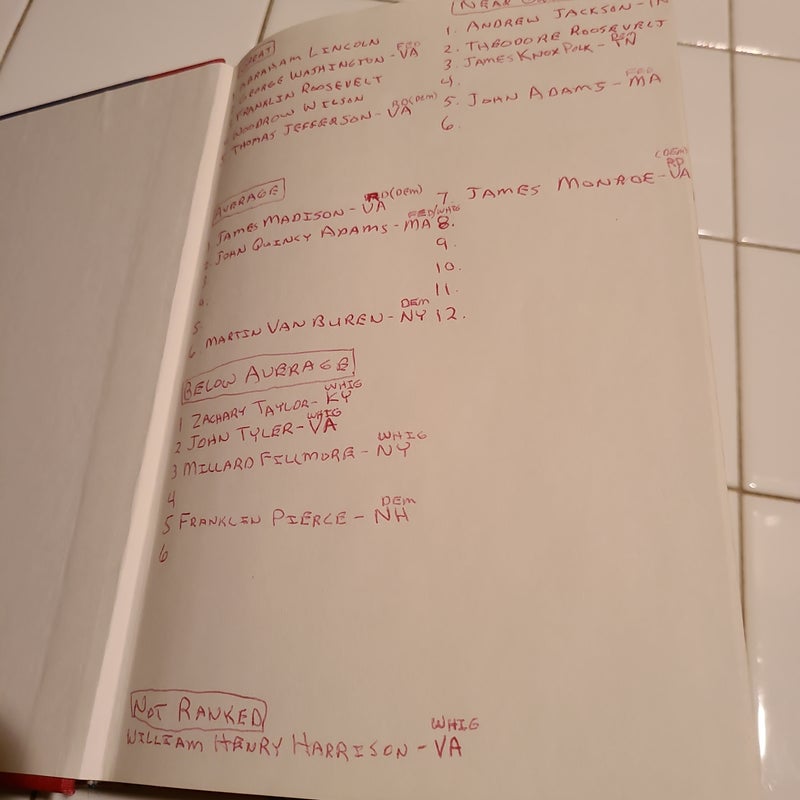 GREAT
ABRAHAM LINCOLN
FED
GEORGE WASHINGTON - VA
FRANKLIN ROOSEVELT
WOODROW WILSON
RD (DEM)
THOMAS JEFFERSON - VA
NEAR
1. ANDREW JACKSON - TN
2. THEODORE ROOSEVELT
DEM
3. JAMES KNOX POLK - TN
4.
FED
5. JOHN ADAMS - MA
6.
AVERAGE
RD (DEM)
1 JAMES MADISON - VA
FED/WHIG
2. JOHN QUINCY ADAMS - MA
3
4.
5.
DEM
6 MARTIN VAN BUREN - NY
(DEM)
RD
7. JAMES MONROE - VA
8.
9.
10.
11.
12.
BELOW AVERAGE
WHIG
1 ZACHARY TAYLOR - KY
WHIG
2 JOHN TYLER - VA
WHIG
3 MILLARD FILLMORE - NY
4
DEM
5 FRANKLIN PIERCE - NH
6
NOT RANKED
WHIG
WILLIAM HENRY HARRISON - VA